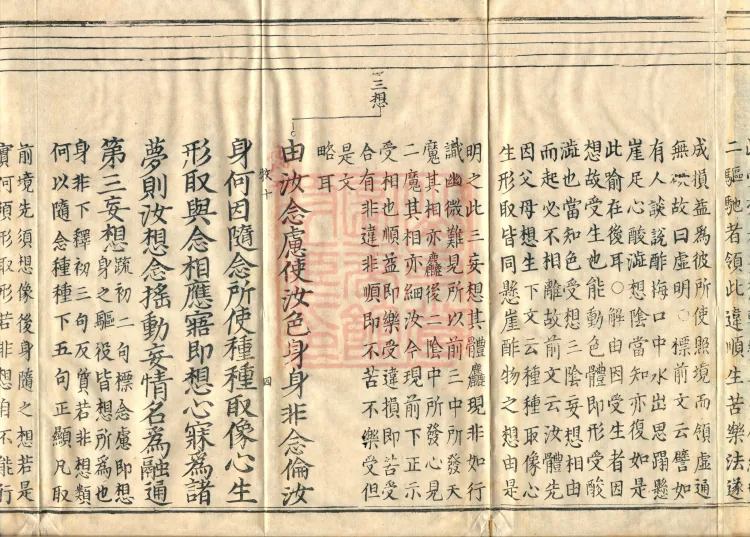 二驅馳者領此違順生苦樂法遂
成損益為彼所使照境而領虛通
無礙故曰虛明○標前文云譬如
有人談說酢梅口中水出思蹋懸
崖足心酸澁想陰當知亦復如是
此喻在後耳○解由因受生者因
想故受生也能動色體即形受酸
澁也當知色受想三陰妄想相由
而起必不相離故前文云汝體先
因父母想生下文云種種取像心
生形取皆同懸崖酢物之想由是
明之此三妄想其體麤現非如行
識幽微難見所以前三中所發天
魔其相亦麤後二陰中所發心見
二魔其相亦細汝今現前下正示
受相也順益即樂受違損即苦受
合有非違非順即不苦不樂受但
是文
略耳
三想
由汝念慮使汝色身身非念倫汝
身何因隨念所使種種取像心生
形取與念相應寤即想心寐為諸
夢則汝想念搖動妄情名為融通
第三妄想
疏初二句標念慮即想
身之驅役皆想所為也
身非下釋初三句反質若非想類
何以隨念種種下五句正顯凡取
前境先須想像後身隨之想若是
實何須形取形若非想自不能行
四